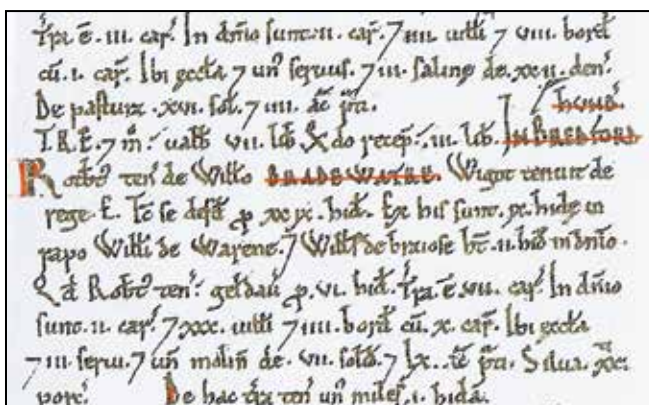 Tra. ē. iii. car̃. In dñio sunt. ii. car̃. 7 iiii. uilli 7 viii. bord
cū. i. car̃. Ibi æccła 7 un̄ seruus. 7 iii. salinæ de. xxii. den̄.
De pastura. xvi. sol. 7 iiii. ac̄ p̃ti.
T.R.E. 7 m̊. ualb vii. lib. Qdo recep̃. iii. lib. IN BREDFORD
HVND̃.
Robt̃ ten̄ de Wiłło BRADEWATRE. Wigot tenuit de
rege. E. Tc̄ se defd̄ p xxix. hid. Ex his sunt. ix. hidæ in
rapo Wiłłi de Warene. 7 Wiłłs de braiose ht̄. ii. hid in dñio.
Qd Robt̃ ten̄. geldau p. vi. hid. Tra. ē. vii. car̃. In dñio
sunt. ii. car̃. 7 xxx. uilli 7 iiii. bord cū. x. car̃. Ibi æccła
7 iii. serui. 7 un̄ molin̄ de. vii. solid. 7 lx. ac̄ p̃ti. Silua. xx.
porc̃. De hac tra ten̄ un̄ miles. i. hida.